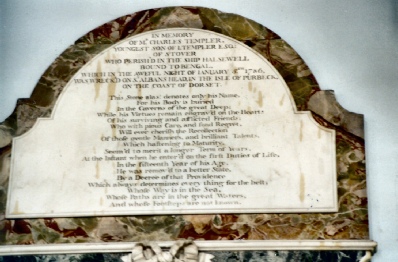 IN MEMORY
OF Mr. CHARLES TEMPLER,
YOUNGEST SON OF J. TEMPLER ESQ:
OF STOVER
WHO PERISHED IN THE SHIP HALSEWELL
BOUND TO BENGAL,
WHICH IN THE AWEFUL NIGHT OF JANUARY 1786,
WAS WRECK'D ON St. ALBANS HEAD IN THE ISLE OF PURBECK,
ON THE COAST OF DORSET.
This Stone alas! denotes only his Name,
For his Body is buried
In the Caverns of the great Deep;
While his Virtues remain engrav'd on the Hearts
Of his surviving and afflicted Friends;
Who with pious Care, and fond Regret,
Will ever cherish the Recollection
Of those gentle Manners, and brilliant Talents,
Which hastening to Maturity,
Seem'd to merit a longer Term of Years.
At the Instant when he enter'd on the first Duties of Life,
In the fifteenth Year of his Age,
He was remov'd to a better State,
By a Decree of that Providence
Which always determines every thing for the best,
Whose Way is in the Sea,
Whose Paths are in the great Waters,
And whose Footsteps are not known.